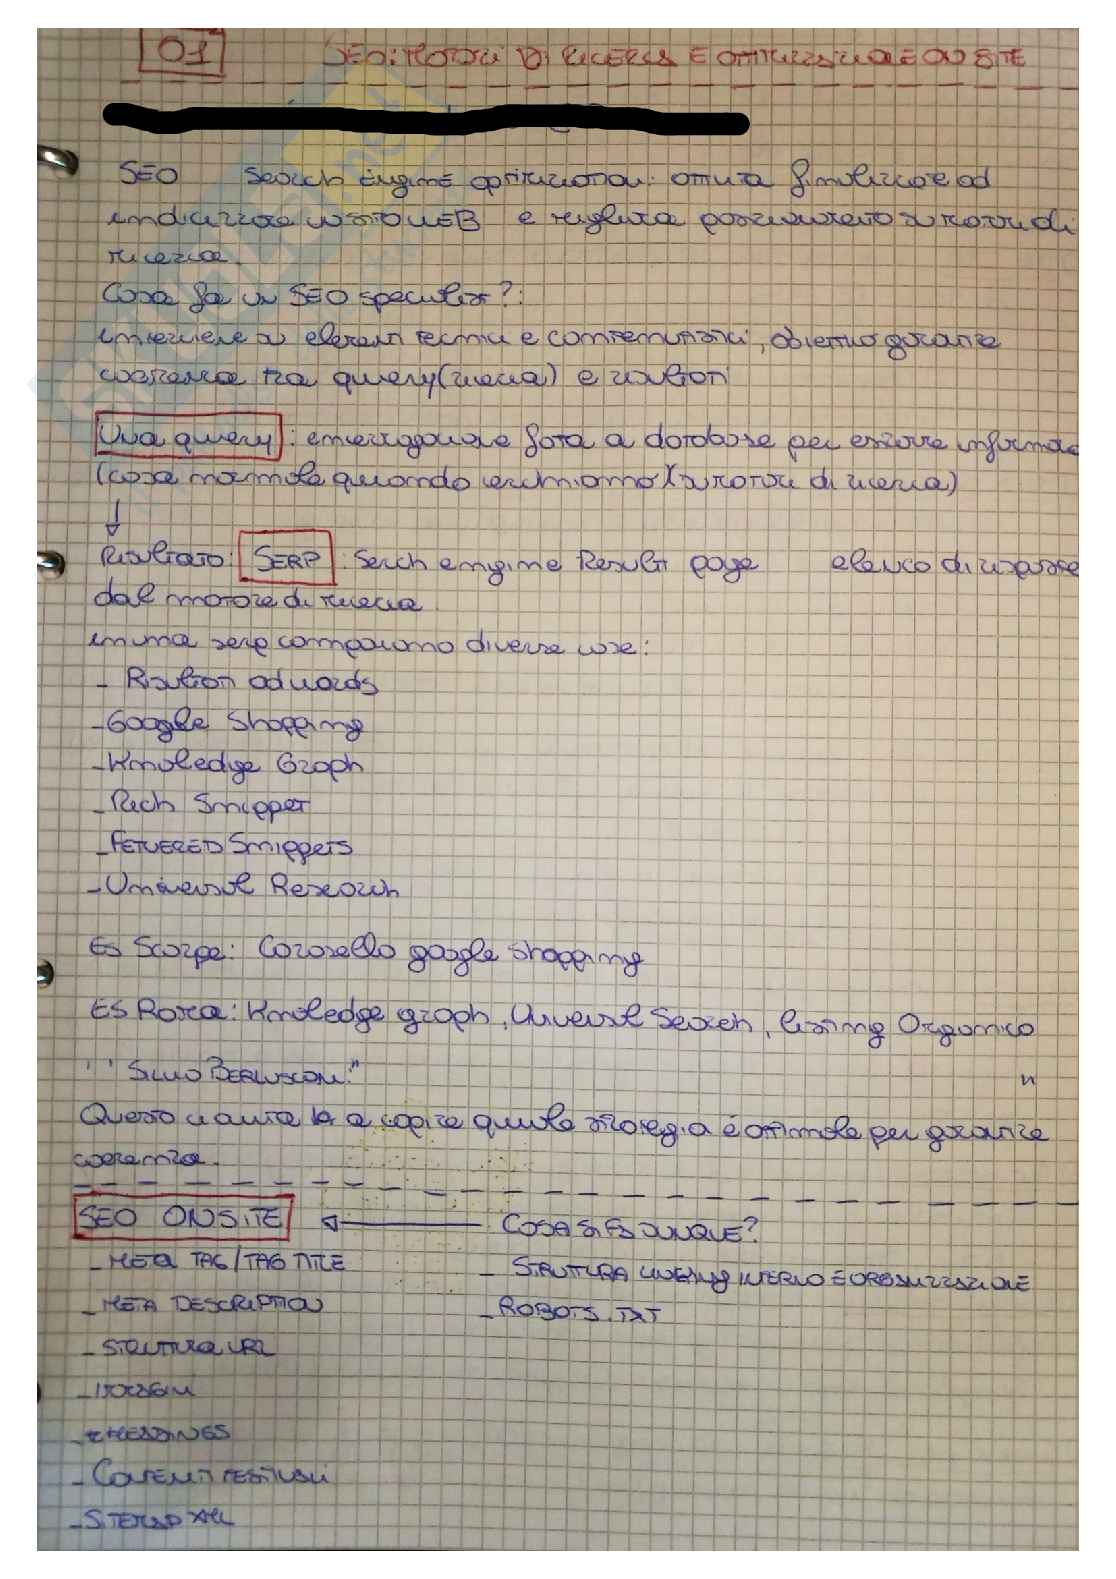 01 SEO: MOTORI DI RICERCA E OTTIMIZZAZIONE ON SITE
SEO Search Engine optimization: attività finalizzate ad
indicizzare un sito WEB e migliorare posizionamento su motori di
ricerca.
Cosa fa un SEO specialist?:
interviene su elementi tecnici e contenutistici, obiettivo garantire
coerenza tra query (ricerca) e risultati
Una query: interrogazione fatta a database per estrarre informaz
(cosa normale quando cerchiamo su motore di ricerca)
Risultato: SERP: Serch engine Result page elenco di risposte
dal motore di ricerca
in una serp compaiono diverse cose:
- Risultati adwords
- Google Shopping
- Knoledge Graph
- Rich Snippet
- FETUERED Snippets
- Universal Research
Es Scarpe: Carosello google shopping
ES Roma: Knoledge graph, Universal Search, listing Organico
" "Silvio Berlusconi" "
Questo ci aiuta a capire quale strategia è ottimale per garantire
coerenza.
SEO ONSITE COSA SI FA DUNQUE?
- META TAG/TAG TITLE - STRUTTURA LINKING INTERNO E ORGANIZZAZIONE
- META DESCRIPTION - ROBOTS.TXT
- STRUTTURA URL
- IMMAGINI
- HEADINGS
- CONTENUTI TESTUALI
- SITEMAP XML